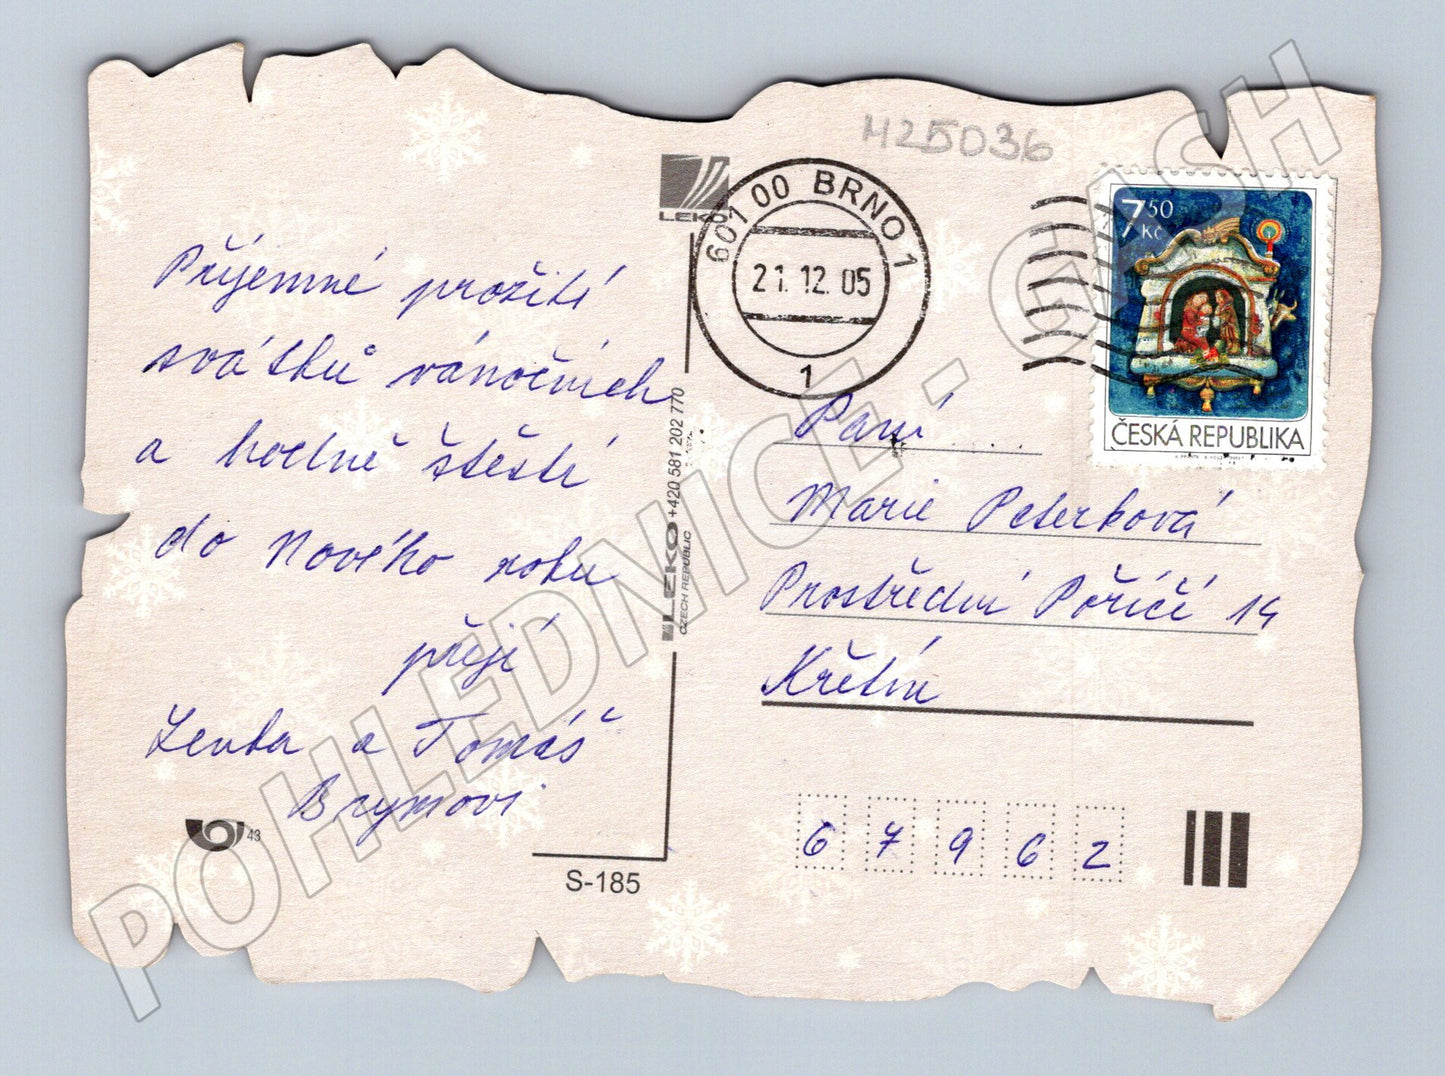 H25036
LEKO
601 00 BRNO 1
21. 12. 05
1
7 50
Kč
ČESKÁ REPUBLIKA
Příjemné prožití
svátků vánočních
a hodně štěstí
do Nového roku
přejí
Lenka a Tomáš
Brymovi
43
S-185
LEKO +420 581 202 770
CZECH REPUBLIC
Paní
Marie Peterková
Prostřední Poříčí 14
Křetín
6 7 9 6 2
POHLEDNICE - CASH